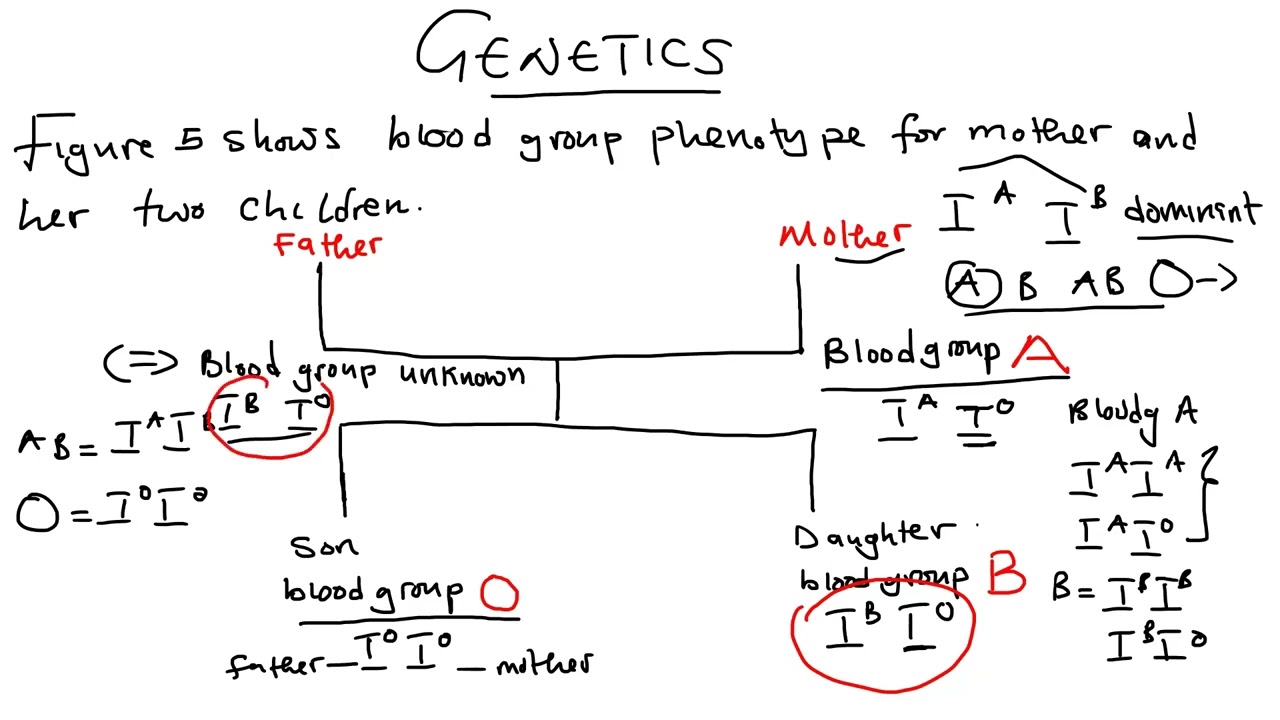 GENETICS
Figure 5 shows blood group phenotype for mother and
her two children.
I^A I^B dominant
Father
Mother
A B AB O ->
(=> Blood group unknown
Blood group A
I^B I^O
I^A I^O
Bloodg A
AB = I^A I^B
I^A I^A
O = I^O I^O
I^A I^O
Son
Daughter
blood group O
blood group B
B = I^B I^B
I^O I^O
I^B I^O
I^B I^O
father — mother